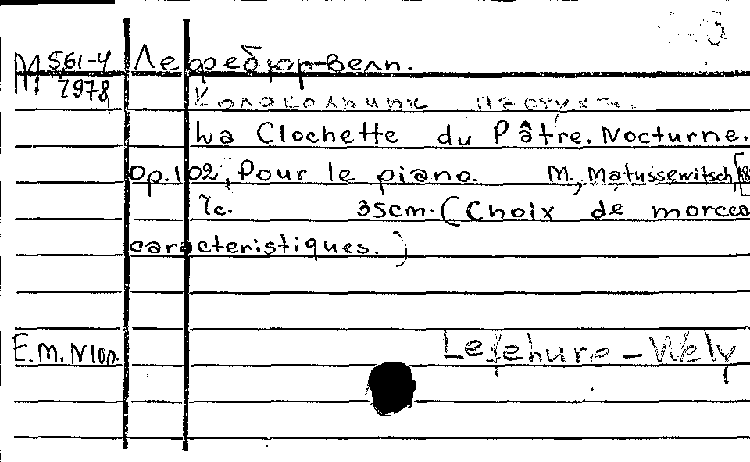 М 561-4 Лефебюр-Вели.
7978 Колокольчик пастуха.
La Clochette du Pâtre. Nocturne.
Op.102, Pour le piano. M., Matussewitsch, [18
7c. 35cm. (Choix de morcea
caracteristiques.)
E.M. N100. Lefehure-Wely